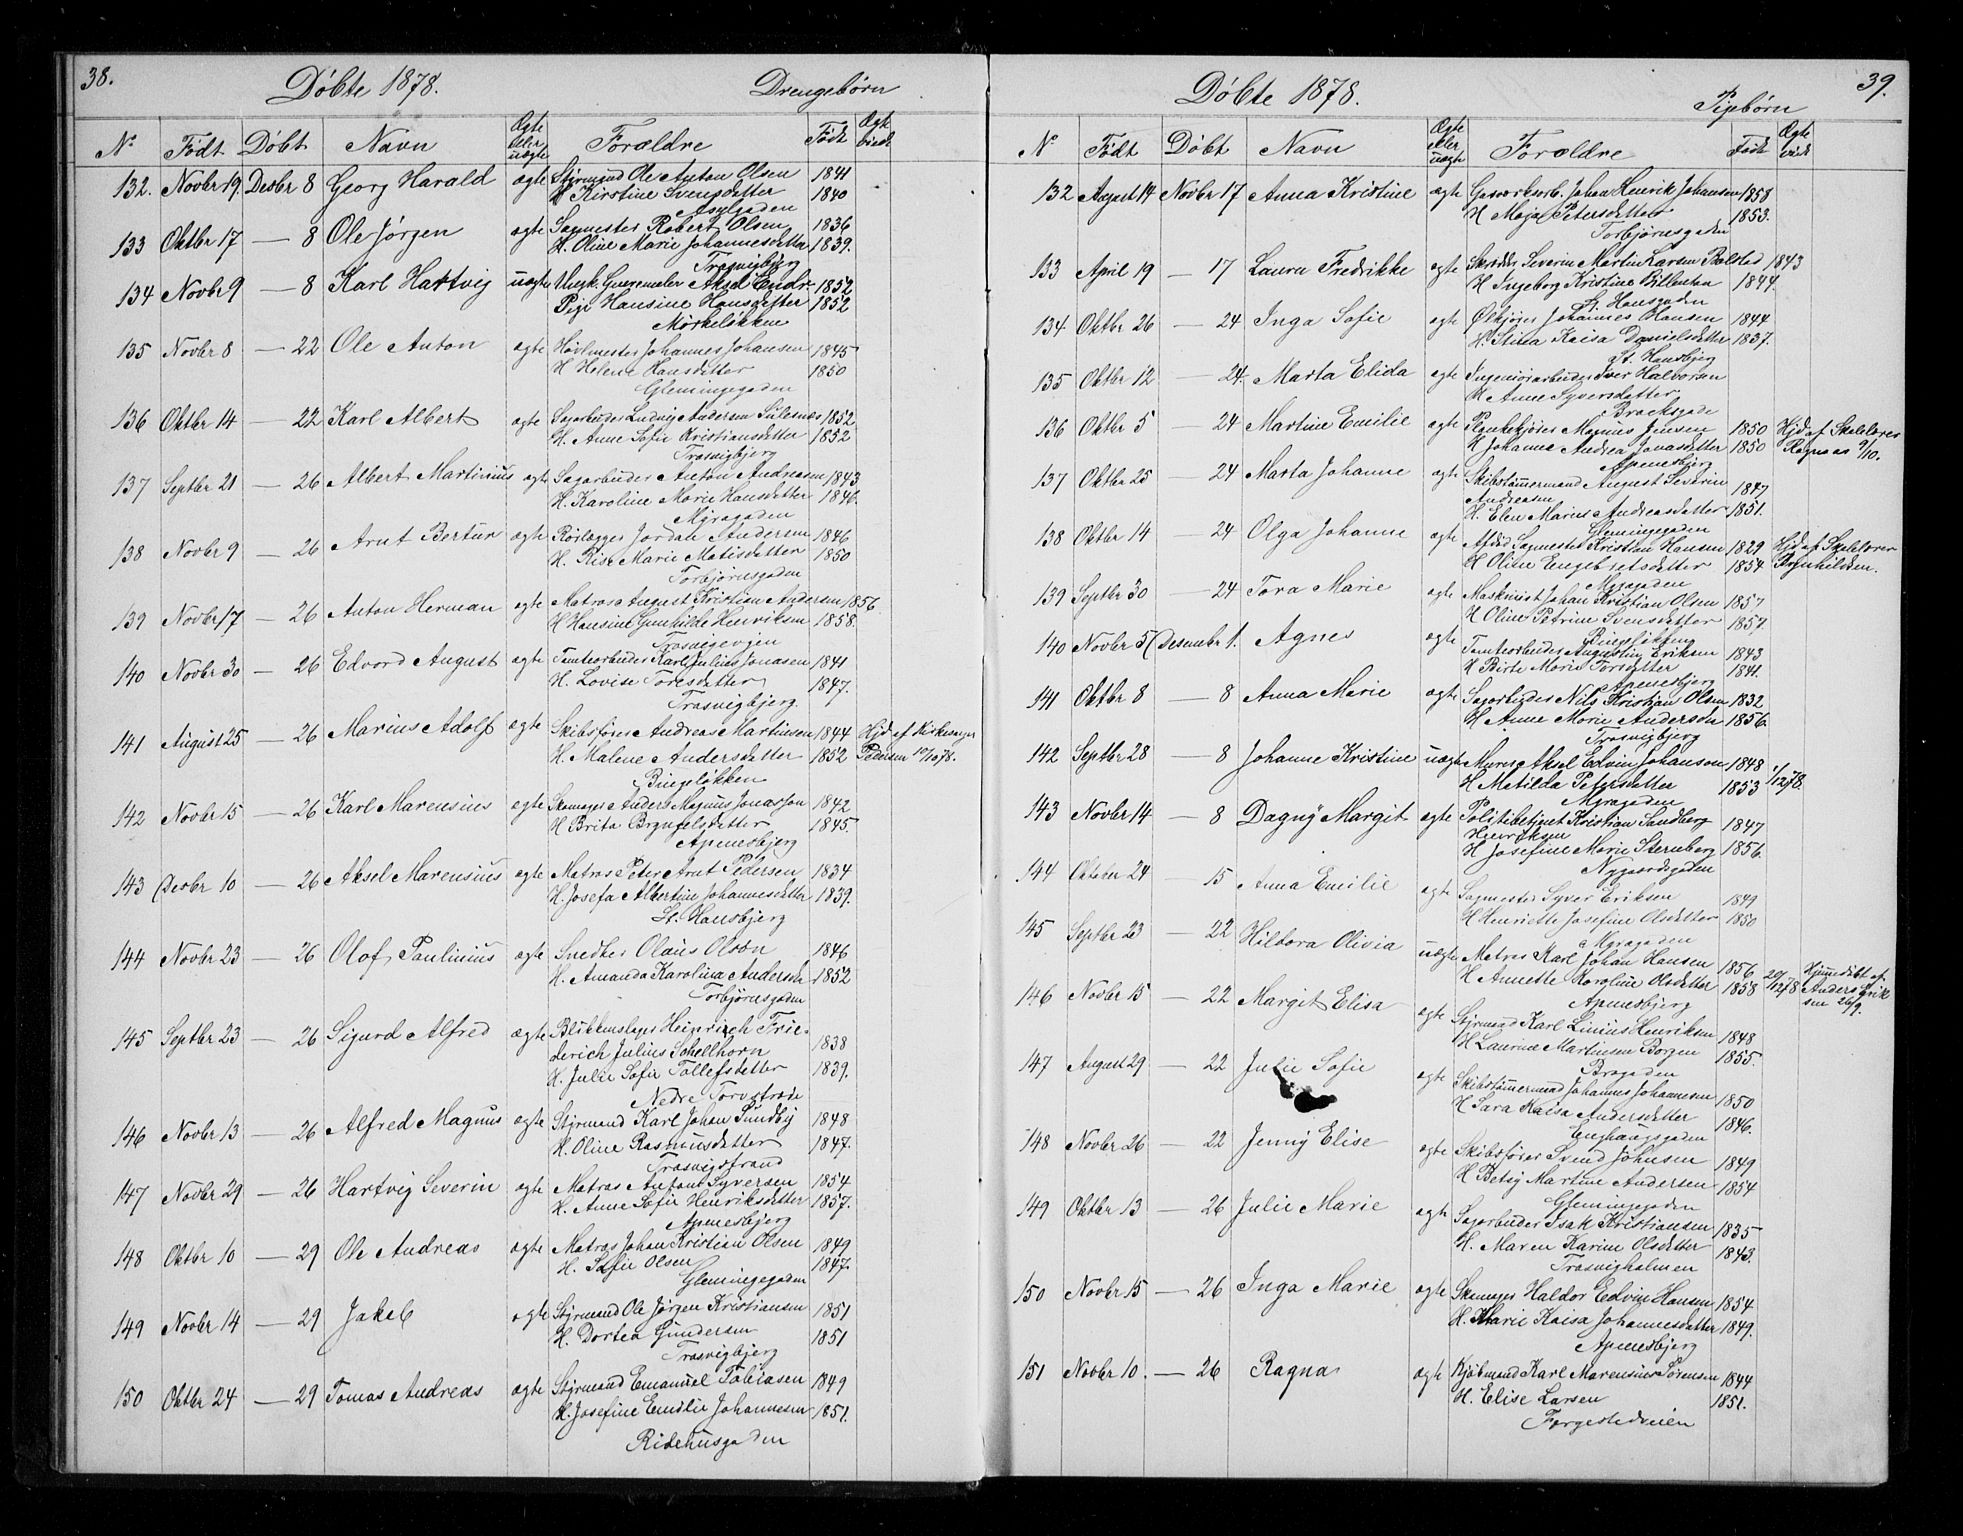 38.
Döbte 1878.
Drengebörn
No
Födt
Döbt
Navn
Ægte eller uægte
Forældre
Födt
Ægte viede
132. Novbr 19. Desbr 8 Georg Harald ægte Styrmand Ole Anton Olsen 1841
H Kirstine Svensdatter 1840
Asylgaden
133 Oktbr 17 — 8 Ole Jörgen ægte Sagmester Robert Olsen 1836
H. Oline Marie Johannesdatter 1839.
Trosvigbjerg
134 Novbr 9 — 8 Karl Hartvig uægte Ungk. Aksel Endr. 1852
Pige Hansine Hansdatter 1852
Mörkelökken
135 Novbr 8 — 22 Ole Anton ægte Hövlmester Johannes Johansen 1845
H Helene Hansdatter 1850
Glemingegaden
136 Oktbr 14 — 22 Karl Albert ægte Sagarbeider Ludvig Andersen 1852
H. Anne Sofie Kristiansdatter 1852
Trosvigbjerg
137 Septbr 21 — 26 Albert Martinius ægte Sagarbeider Anton Andreasen 1843
H. Karoline Marie Hansdatter 1846.
Myragaden
138 Novbr 9 — 26 Arnt Bertur ægte Rörlægger Jordan Andersen 1846
H. Risx Marie Matisdatter 1850
Torbjörnsgaden
139 Novbr 17 — 26 Anton Herman ægte Matros August Kristian Andersen 1856
H Hansine Gunhilde Henriksen 1858.
Trosvigveien
140 Novbr 30 — 26 Edvord August ægte Tomtearbeider Karl Julius Jonasen 1841
H. Lovise Toresdatter 1847.
Trosvigbjerg
141 August 25 — 26 Marius Adolf ægte Skibsförer Andreas Martinsen 1844 Hjd af Kirkesanger
H. Malene Andersdatter 1852 Pedersen 10/10 78.
Bingelökken
142 Novbr 15 — 26 Karl Marensius ægte Skomager Anders Magnus Jonasson 1842
H Brita Brynfelsdatter 1845.
Apenesbjerg
143 Desbr 10 — 26 Aksel Marensius ægte Matros Peter Arnt Pedersen 1834
H. Josefa Albertine Johannesdatter 1839.
St. Hansbjerg
144 Novbr 23 — 26 Olaf Paulinius ægte Snedker Olaus Olsen 1846
H. Amanda Karolina Andersdr 1852
Torbjörnsgaden
145 Septbr 23 — 26 Sigurd Alfred ægte Blikkenslager Heinrich Frie-
derich Julius Schellhorn 1838
H. Julie Sofie Tollefsdatter 1839.
Nedre Torvstrøde
146 Novbr 13 — 26 Alfred Magnus ægte Styrmand Karl Johan Sundby 1848
H. Oline Rasmusdatter 1847.
Trosvigstrand
147 Novbr 29 — 26 Hartvig Severin ægte Matros Antoni Syversen 1854
H. Anne Sofie Henriksdatter 1857.
Apenesbjerg
148 Oktbr 10 — 29 Ole Andreas ægte Matros Johan Kristian Olsen 1849
H. Sofie Olsen 1847.
Glemingegaden
149 Novbr 14 — 29 Jakob ægte Styrmand Ole Jörgen Kristiansen 1851
H. Dortea Gundersen 1851
Trosvigbjerg
150 Oktbr 24 — 29 Tomas Andreas ægte Styrmand Emanuel Tobiasen 1849
H. Josefine Emilie Johannesen 1851.
Ridehusgaden
39.
Döbte 1878.
Pigebörn
No
Födt
Döbt
Navn
Ægte eller uægte
Forældre
Födt
Ægte viede
132 August 14 Novbr 17 Anna Kristine ægte Gasværksarb. Johan Henrik Johansen 1858
H Maja Petersdatter 1853.
Torbjörnsgaden
133 April 19 — 17 Laura Fredrikke ægte Skrædder Severin Martin Larsen Bolsted 1843
H Ingeborg Kristine 1844.
St. Hansgaden
134 Oktbr 26 — 24 Inga Sofie ægte Ölkjörer Johannes Hansen 1844
H. Stina Kaisa Danielsdatter 1837.
St. Hansbjerg
135 Oktbr 12 — 24. Marta Elida ægte Ingeniörarbeider Iver Halvorsen
H Anne Syversdatter
Brochsgade
136 Oktbr 5 — 24 Martine Emilie ægte Plankekjörer Magnus Jensen 1850 Hjd af Skolelærer
H Johanne Andrea Jonasdatter 1850 Rognaas 9/10.
Apenesbjerg
137 Oktbr 25 — 24 Marta Johanne ægte Skibstömmermand August Severin
Andreasen 1847
H. Elen Marius Andreasdatter 1851.
Glemingegaden
138 Oktbr 14 — 24 Olga Johanne ægte Afdöd Sagmester Kristian Hansen 1829 Hjd af Skolelærer
H Oline Engebretsdatter 1854. Brynhildsen.
Myragaden
139 Septbr 30 — 24 Tora Marie ægte Maskinist Johan Kristian Olsen 1857
H Oline Petrine Svensdatter 1852.
Bingelökken
140 Novbr 5 Desembr 1. Agnes ægte Tomtearbeider Augustin Eriksen 1843
H Birte Marie Torsdatter 1841.
Apenesbjerg
141 Oktbr 8 — 8 Anna Marie ægte Sagarbeider Nils Kristian Olsen 1832
H Anne Marie Andersdr 1856.
Trosvigbjerg
142 Septbr 28 — 8 Johanne Kristine uægte Murer Aksel Edvin Johansen 1848 1/12 78.
H Matilda Petersdatter 1853
Myragaden
143 Novbr 14 — 8 Dagny Margit ægte Politibetjent Kristian Sandberg
Henriksen 1847
H Josefine Marie Sternberg 1856.
Nygaardsgaden
144 Oktober 24 — 15 Anna Emilie ægte Sagmester Syver Eriksen 1849
H Henriette Josefine Olsdatter 1850
Myragaden
145 Septbr 23 — 22 Hildora Olivia uægte Matros Karl Johan Hansen 1856 20/12 78 Hjemmedöbt af
H Annette Karoline Olsdatter 1858 Anders Erik
Apenesbjerg sen 26/9.
146 Novbr 15 — 22 Margit Elisa ægte Styrmand Karl Linius Henriksen 1848
H Laurine Martinsen Borgen 1855.
Brogaden
147 August 29 — 22 Julie Sofie ægte Skibstömmermand Johannes Johannesen 1850
H Sara Kaisa Andersdatter 1846.
Enghaugsgaden
148 Novbr 26 — 22 Jenny Elise ægte Skibsförer Svend Johnsen 1849
H Betsy Martine Andersen 1854
Glemingegaden
149 Oktbr 13 — 26 Julie Marie ægte Sagarbeider Isak Kristiansen 1835
H. Maren Karine Olsdatter 1843.
Trosvigholmen
150 Novbr 15 — 26 Inga Marie ægte Skomager Haldor Edvin Hansen 1854
H. Marie Kaisa Johannesdatter 1849.
Apenesbjerg
151 Novbr 10. — 26 Ragna ægte Kjöbmand Karl Marensius Sörensen 1844
H. Elise Larsen 1851.
Færgestedveien